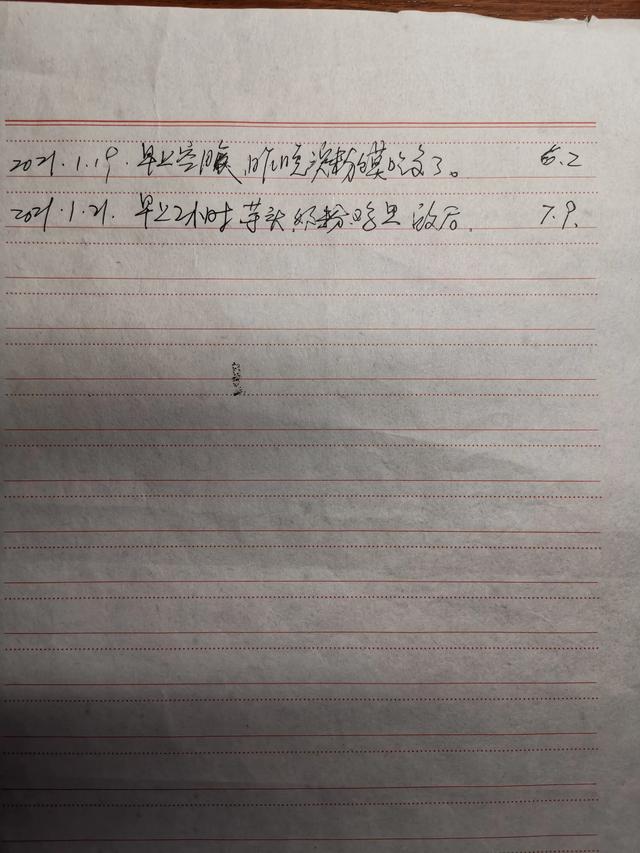 2021.1.19. 早上空腹,昨晚粉馍吃多了。 6.2
2021.1.21. 早上2小时 芋头,奶粉,鸡旦 饭后. 7.9.